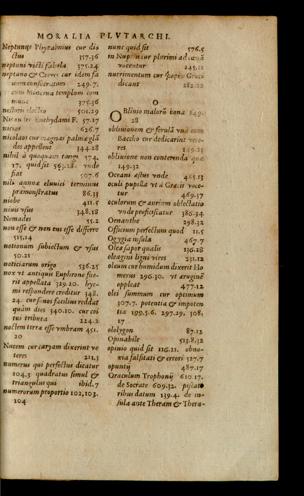 MORALIA PLVTARCHI.
Neptunus Phytalmius cur di-
ctus 357.36
neptuni victi fabula 375.24
neptuno & Cereri cur idem sa
249.7.
cum Minerua templum com
mune 376.36
501.29
Euthydami F. 57.17
626.7
nicolai cur magnas palmas glā
des appellent 344.28
nihil à quoquam 174.
17. quid sit 563.28. vnde
fiat 107.6
nili annua eluuies terminus
præmonstratus 86.31
niobe 411.5
348.18
Nomades 52.2
non esse & non ens esse differre
515.14
notionum subiectum & vsus
50.21
noticiarum origo 536.25
nox vt antiquis Euphrone fue-
rit appellata 329.20. hye-
mi respondere creditur 348.
24. cur sinus facilius reddat
quàm dies 340.10. cur co-
tus tribuera 224.2
noctem terra esse vmbram 451.
20
Nucem cur caryam dixerint ve
teres 211.3
numerus qui perfectus dicatur
104.3 quadratus simul &
triangulus qui ibid.7
numerorum proportio 102,103.
104
nunc quid sit 576.5
in Nuptiis cur plurimi ad cœnā
vocentur 245.11
nutrimentum cur Græci
dicant 282.22
O
OBliuio malorū bona 149.
28
obliuionem & ferulā vnà cum
Baccho cur dedicarint vete-
res
obliuione non contemnēda quæ
149.32
Oceani æstus 468.13
oculi pupilla vt à Græcis voce-
tur 469.37
oculorum & aurium oblectatio
vnde proficiscatur 386.34
Oenanthe 298.32
Officium perfectum quod 11.5
Ogygia insula 467.7
Olea sapor qualis 136.28
oleagini ligni vires 231.12
oleum cur humidum dixerit Ho
merus 296.30. vt æruginē
oppleat 477.12
olei summum cur optimum
307.7. potentia & impoten
tia 199.5.6. 297.29. 308.
17
ololygon 87.12
Opinabile 513.8.12
opinio quid sit 116.11. obno-
xia falsitati & errori 527.7
opuntij 487.17
Oraculum Trophonij 610.17.
de Socrate 609.32. piscato
ribus datum 139.4. de in-
sula ante Theram & Thera-